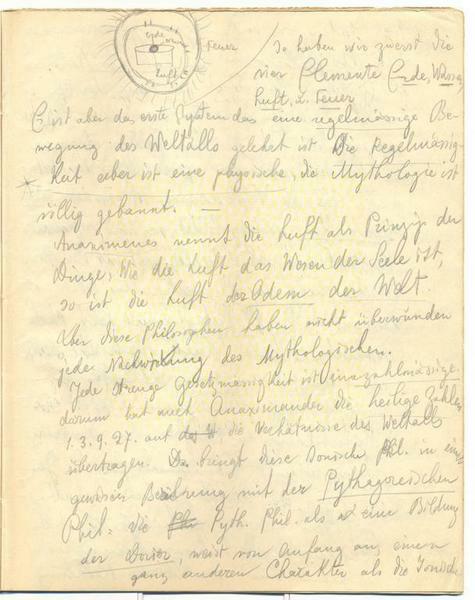 Erde
Feuer
Luft
So haben wir zuerst die
vier Elemente Erde, Wasser
Luft, u. Feuer
Es ist aber das erste System das eine regelmässige Be-
wegung des Weltalls gelehrt ist Die Regelmässig-
keit aber ist eine physische, die Mythologie ist
völlig gebannt. —
Anaximenes nennt die Luft als Prinzip der
Dinge; Wie die Luft das Wesen der Seele ist,
so ist die Luft der Odem der Welt.
Aber diese Philosophen haben nicht überwunden
jede Nachwirkung des Mythologischen.
Jede strenge Gesetzmässigkeit ist eine zahlmässige.
darum hat auch Anaximander die heilige Zahlen
1. 3. 9. 27. auf die Verhältnisse des Weltalls
übertragen. Das bringt diese Ionische Phil. in eine
gewissen Berührung mit der Pythagoreischen
Phil= die Pyth. Phil. als eine Bildung
der Dorier, weist von Anfang an einen
ganz anderen Charakter als die Ionische